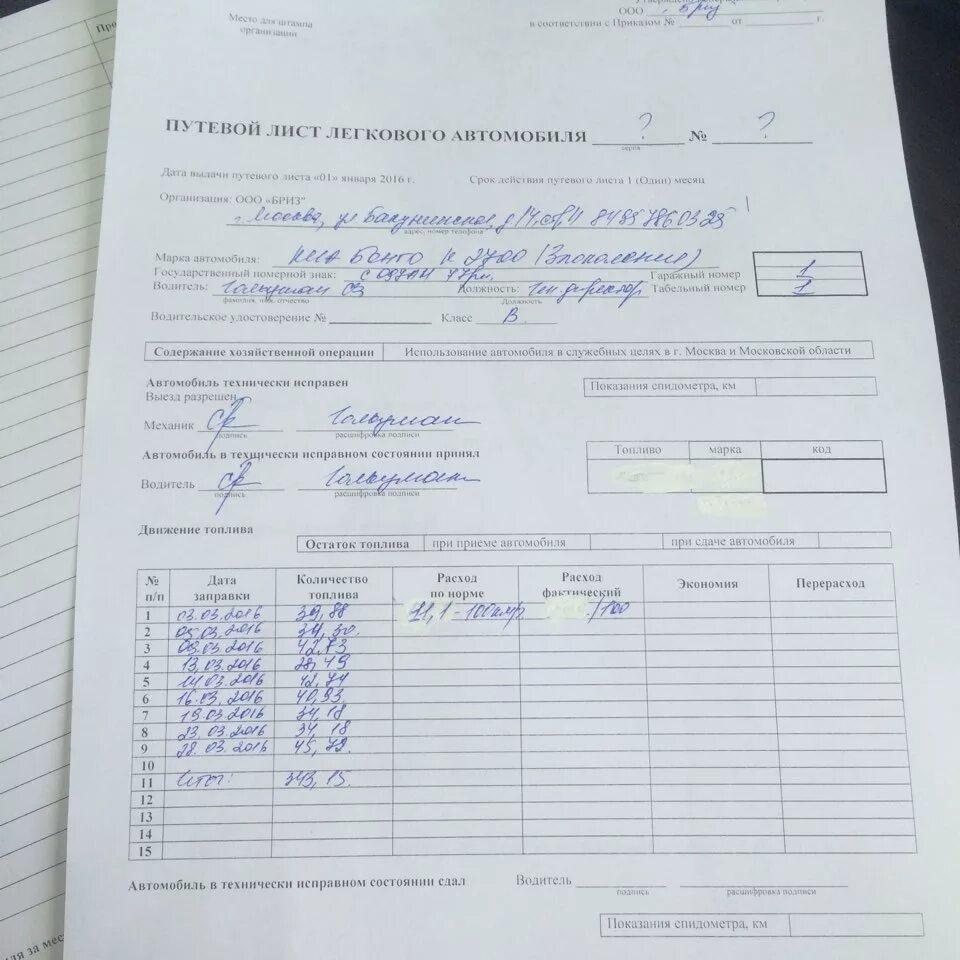 ООО "Бриз
Место для штампа
организации
в соответствии с Приказом № от г.
ПУТЕВОЙ ЛИСТ ЛЕГКОВОГО АВТОМОБИЛЯ ? № ?
серия
Дата выдачи путевого листа «01» января 2016 г. Срок действия путевого листа 1 (Один) месяц
Организация: ООО «БРИЗ"
г. Москва, ул Бакунинская, д 14, стр 11 8495 786 03 25
адрес, номер телефона
Марка автомобиля: КИА Бонго К 2700 (3 поколение)
Государственный номерной знак: Гаражный номер 1
Водитель: Должность: Ген. директор Табельный номер 1
фамилия, имя, отчество Должность
Водительское удостоверение № Класс В
Содержание хозяйственной операции Использование автомобиля в служебных целях в г. Москва и Московской области
Автомобиль технически исправен Показания спидометра, км
Выезд разрешен
Механик
подпись расшифровка подписи
Топливо марка код
Автомобиль в технически исправном состоянии принял
Водитель
подпись расшифровка подписи
Движение топлива
Остаток топлива при приеме автомобиля при сдаче автомобиля
№ п/п Дата заправки Количество топлива Расход по норме Расход фактический Экономия Перерасход
1 03.03.2016 39,88 11,1-100км /100
2 05.03.2016 34,30.
3 09.03.2016 42,73
4 13.03.2016 28,49
5 14.03.2016 42,74
6 16.03.2016 40,93
7 19.03.2016 34,18
8 23.03.2016 34,18
9 28.03.2016 45,72.
10
11 Итог: 343,15.
12
13
14
15
Автомобиль в технически исправном состоянии сдал Водитель
подпись расшифровка подписи
Показания спидометра, км